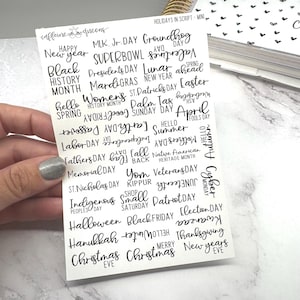 HOLIDAYS IN SCRIPT - MINI
caffeine queens
HAPPY New year
MLK Jr. DAY
Groundhog DAY
SUPERBOWL
Valentines DAY
Black HISTORY MONTH
Presidents DAY
Lunar NEW YEAR
SPRING ahead
Mardi GRAS
Easter
hello SPRING
Womens HISTORY MONTH
St. Patricks DAY
Palm SUNDAY
April
Passover
Earth DAY
HELLO Summer
Mothers DAY
Labor DAY
Independence DAY
Fathers DAY
HELLO Autumn
Memorial DAY
FALL BACK
Native American HERITAGE MONTH
St. Nicholas DAY
Yom KIPPUR
Veterans DAY
Cyber MONDAY
Indigenous PEOPLES DAY
Shop SMALL SATURDAY
Patriot DAY
Juneteenth
Halloween
Black FRIDAY
Election DAY
Kwanzaa
Hanukkah
HELLO Winter
Thanksgiving
Christmas EVE
MERRY Christmas
New years EVE